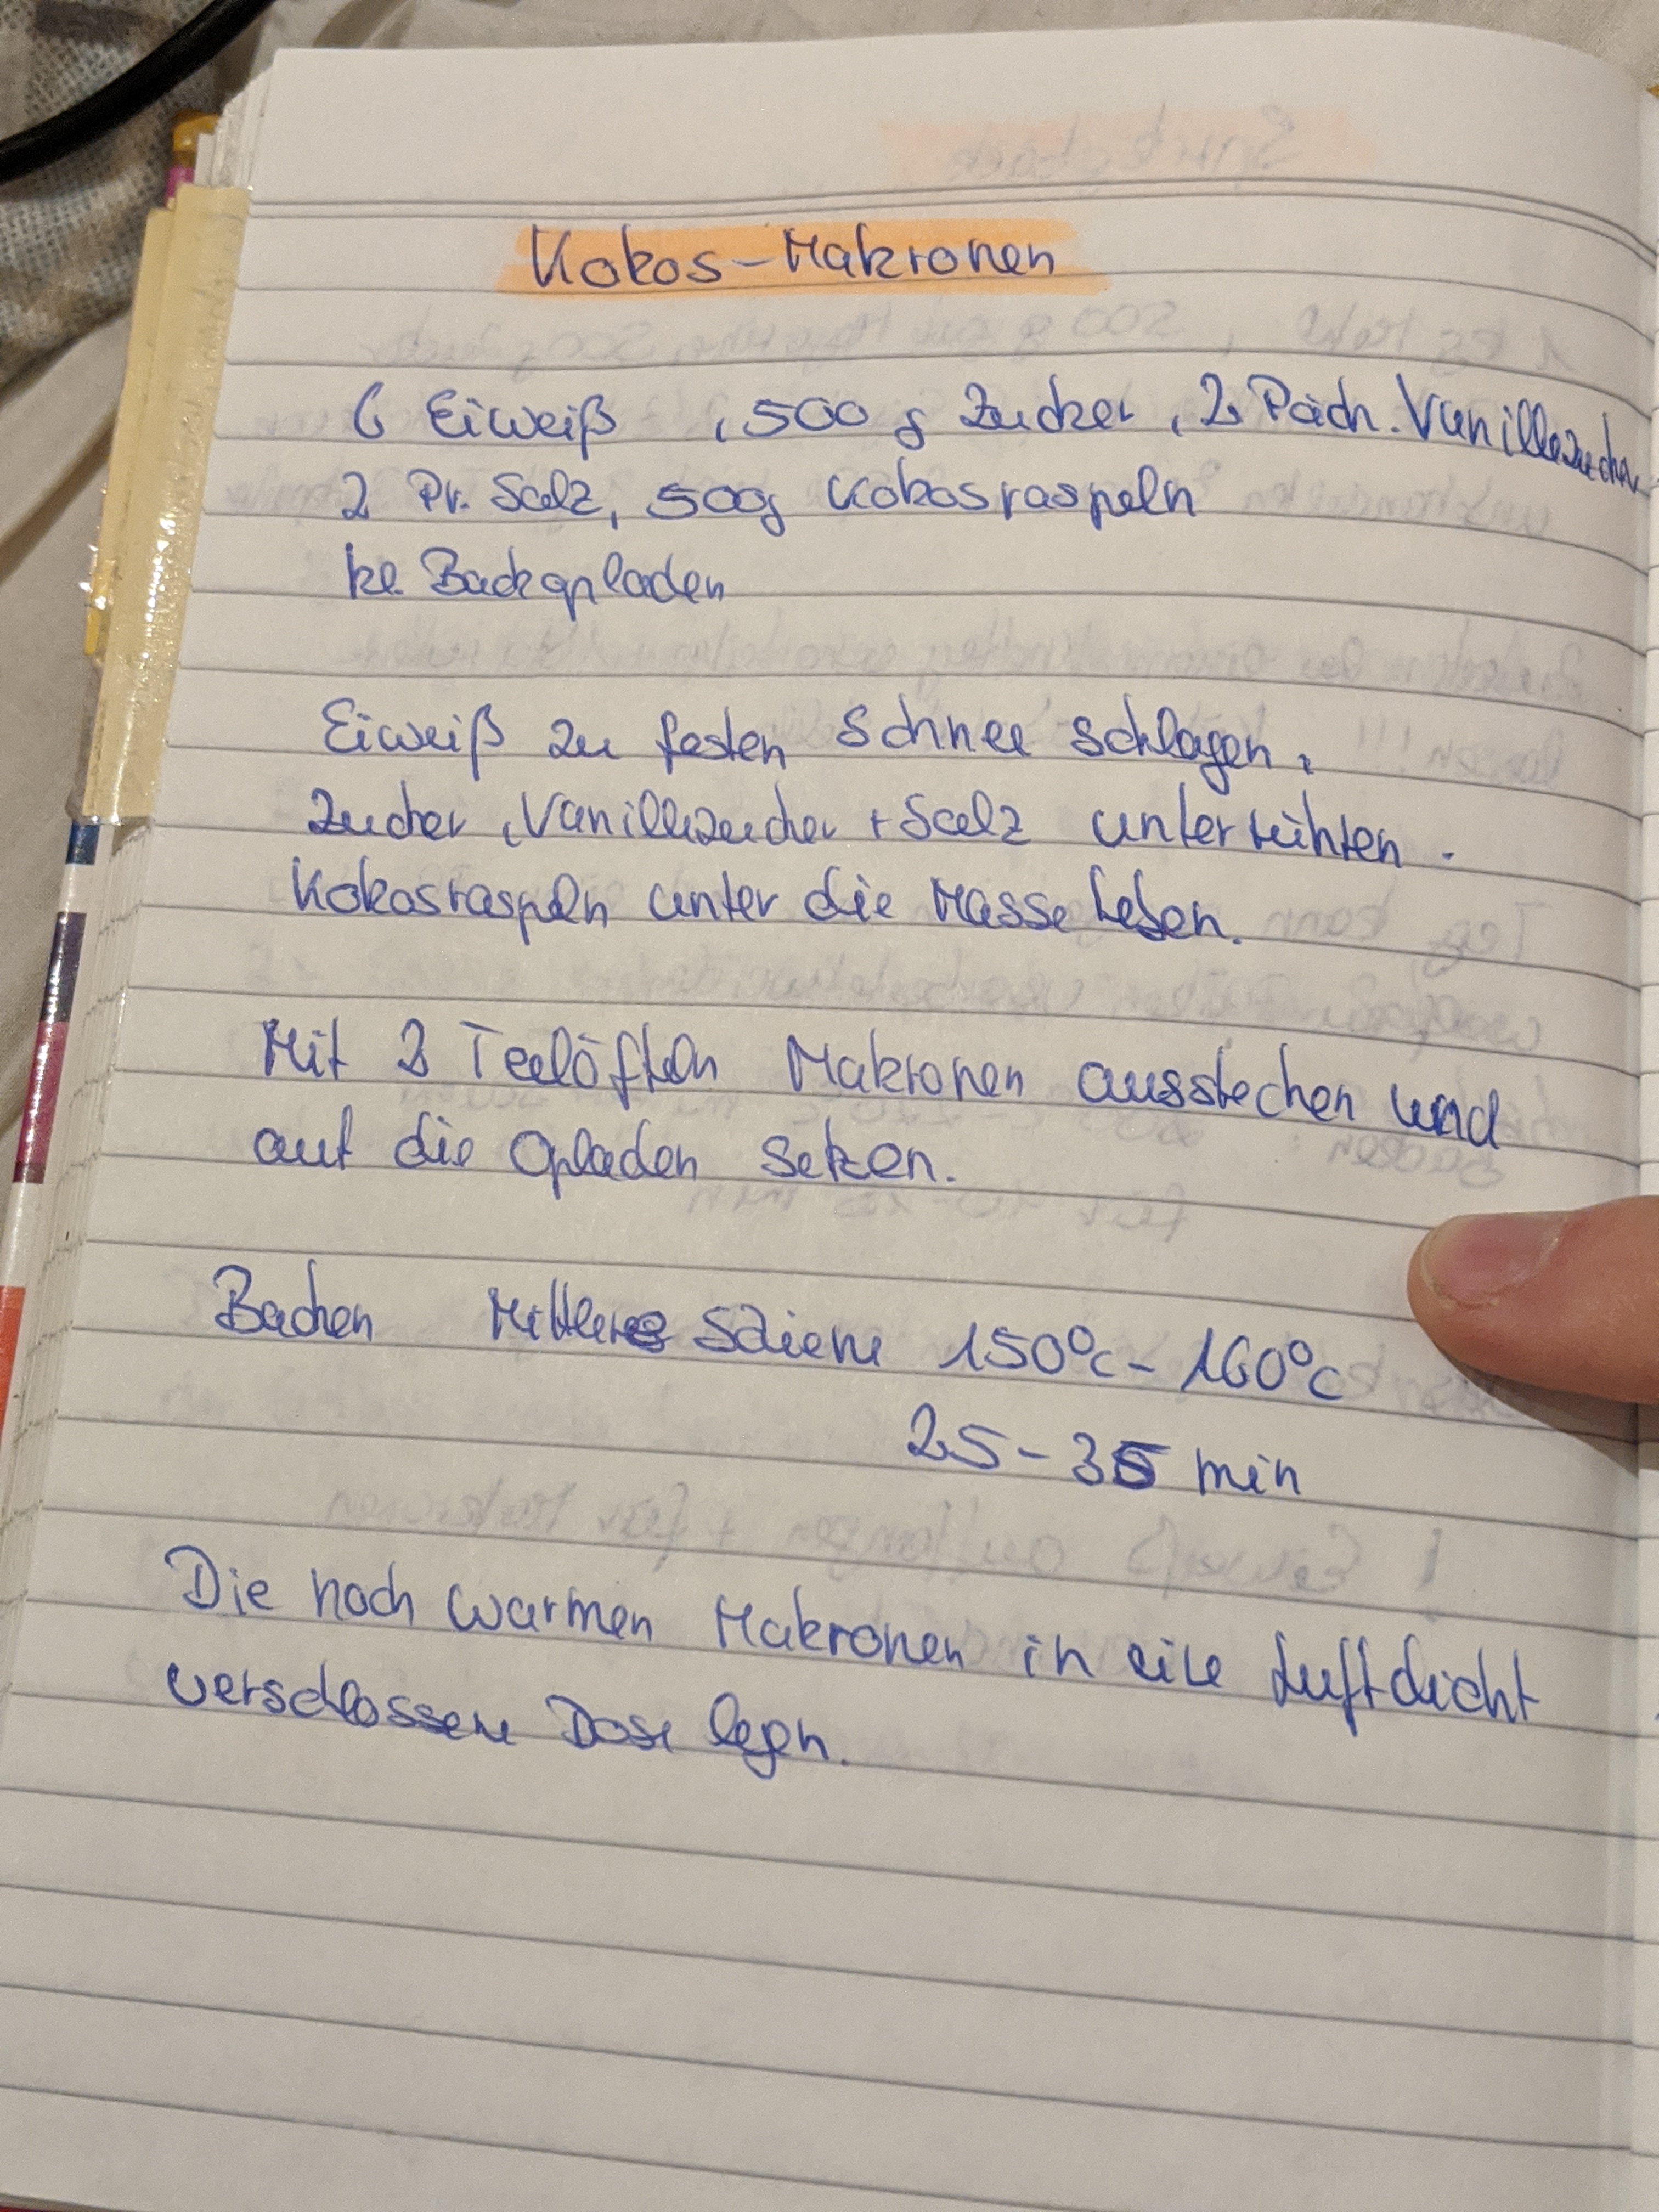 Kokos-Makronen
6 Eiweiß, 500 g Zucker, 2 Päck. Vanillezucker
2 Pr. Salz, 500g Kokosraspeln
kl. Backopladen
Eiweiß zu festen Schnee schlagen,
Zucker, Vanillezucker + Salz unterrühren.
Kokosraspeln unter die Masse heben.
Mit 2 Teelöffeln Makronen ausstechen und
auf die Opladen setzen.
Backen Mittlere Schiene 150°C - 160°C
25 - 35 min
Die noch warmen Makronen in eine Luftdicht
verschlossene Dose legen.